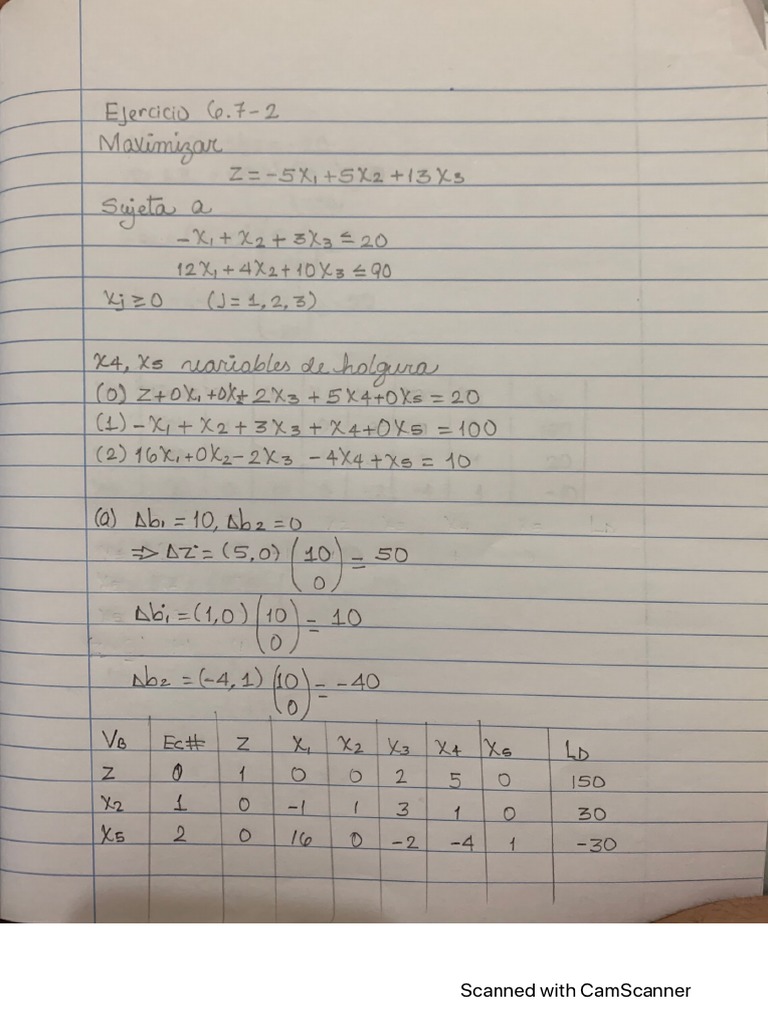 Ejercicio 6.7-2
Maximizar
Z = -5X1 + 5X2 + 13X3
Sujeta a
-X1 + X2 + 3X3 ≤ 20
12X1 + 4X2 + 10X3 ≤ 90
Xj ≥ 0 (J = 1, 2, 3)
X4, X5 variables de holgura
(0) Z + 0X1 + 0X2 + 2X3 + 5X4 + 0X5 = 20
(1) -X1 + X2 + 3X3 + X4 + 0X5 = 100
(2) 16X1 + 0X2 - 2X3 - 4X4 + X5 = 10
(a) Δb1 = 10, Δb2 = 0
⇒ ΔZ* = (5, 0) (10 0) = 50
Δb1* = (1, 0) (10 0) = 10
Δb2 = (-4, 1) (10 0) = -40
VB Ec# Z X1 X2 X3 X4 X5 LD
Z 0 1 0 0 2 5 0 150
X2 1 0 -1 1 3 1 0 30
X5 2 0 16 0 -2 -4 1 -30
Scanned with CamScanner